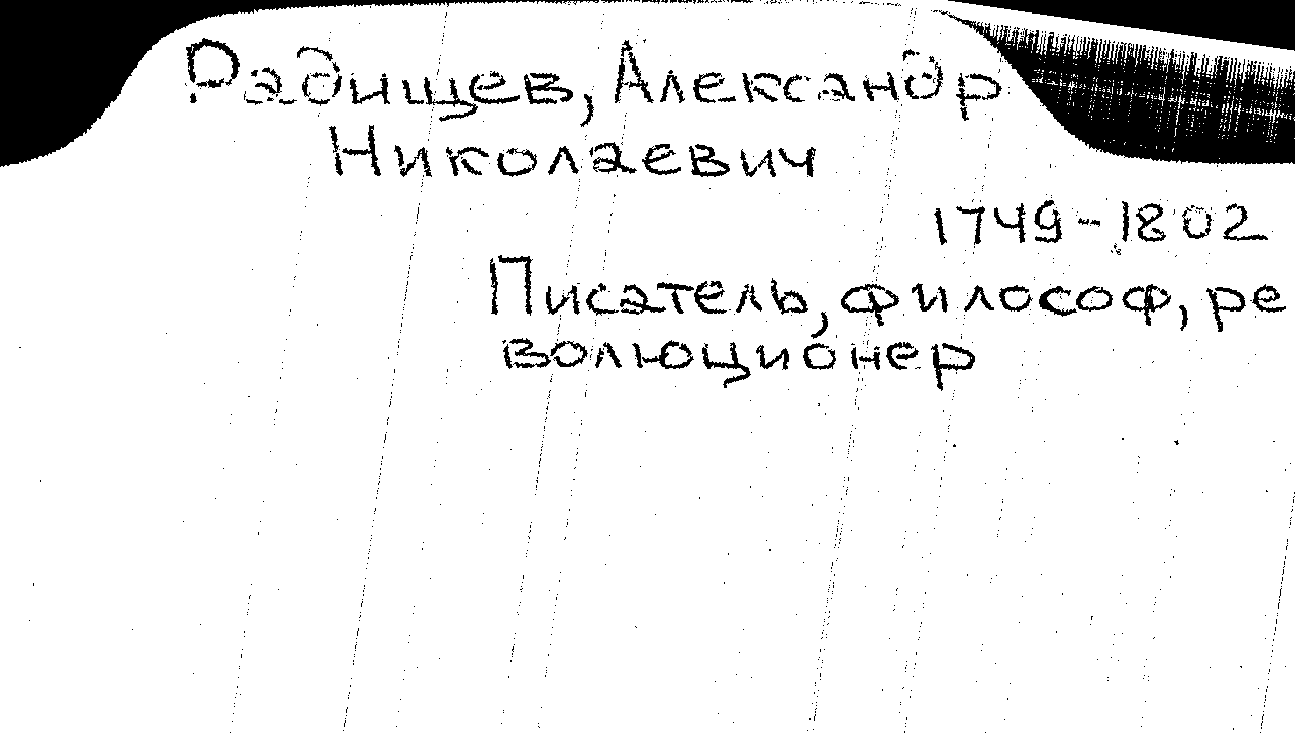 Радищев, Александр
Николаевич
1749-1802
Писатель, философ, ре
волюционер